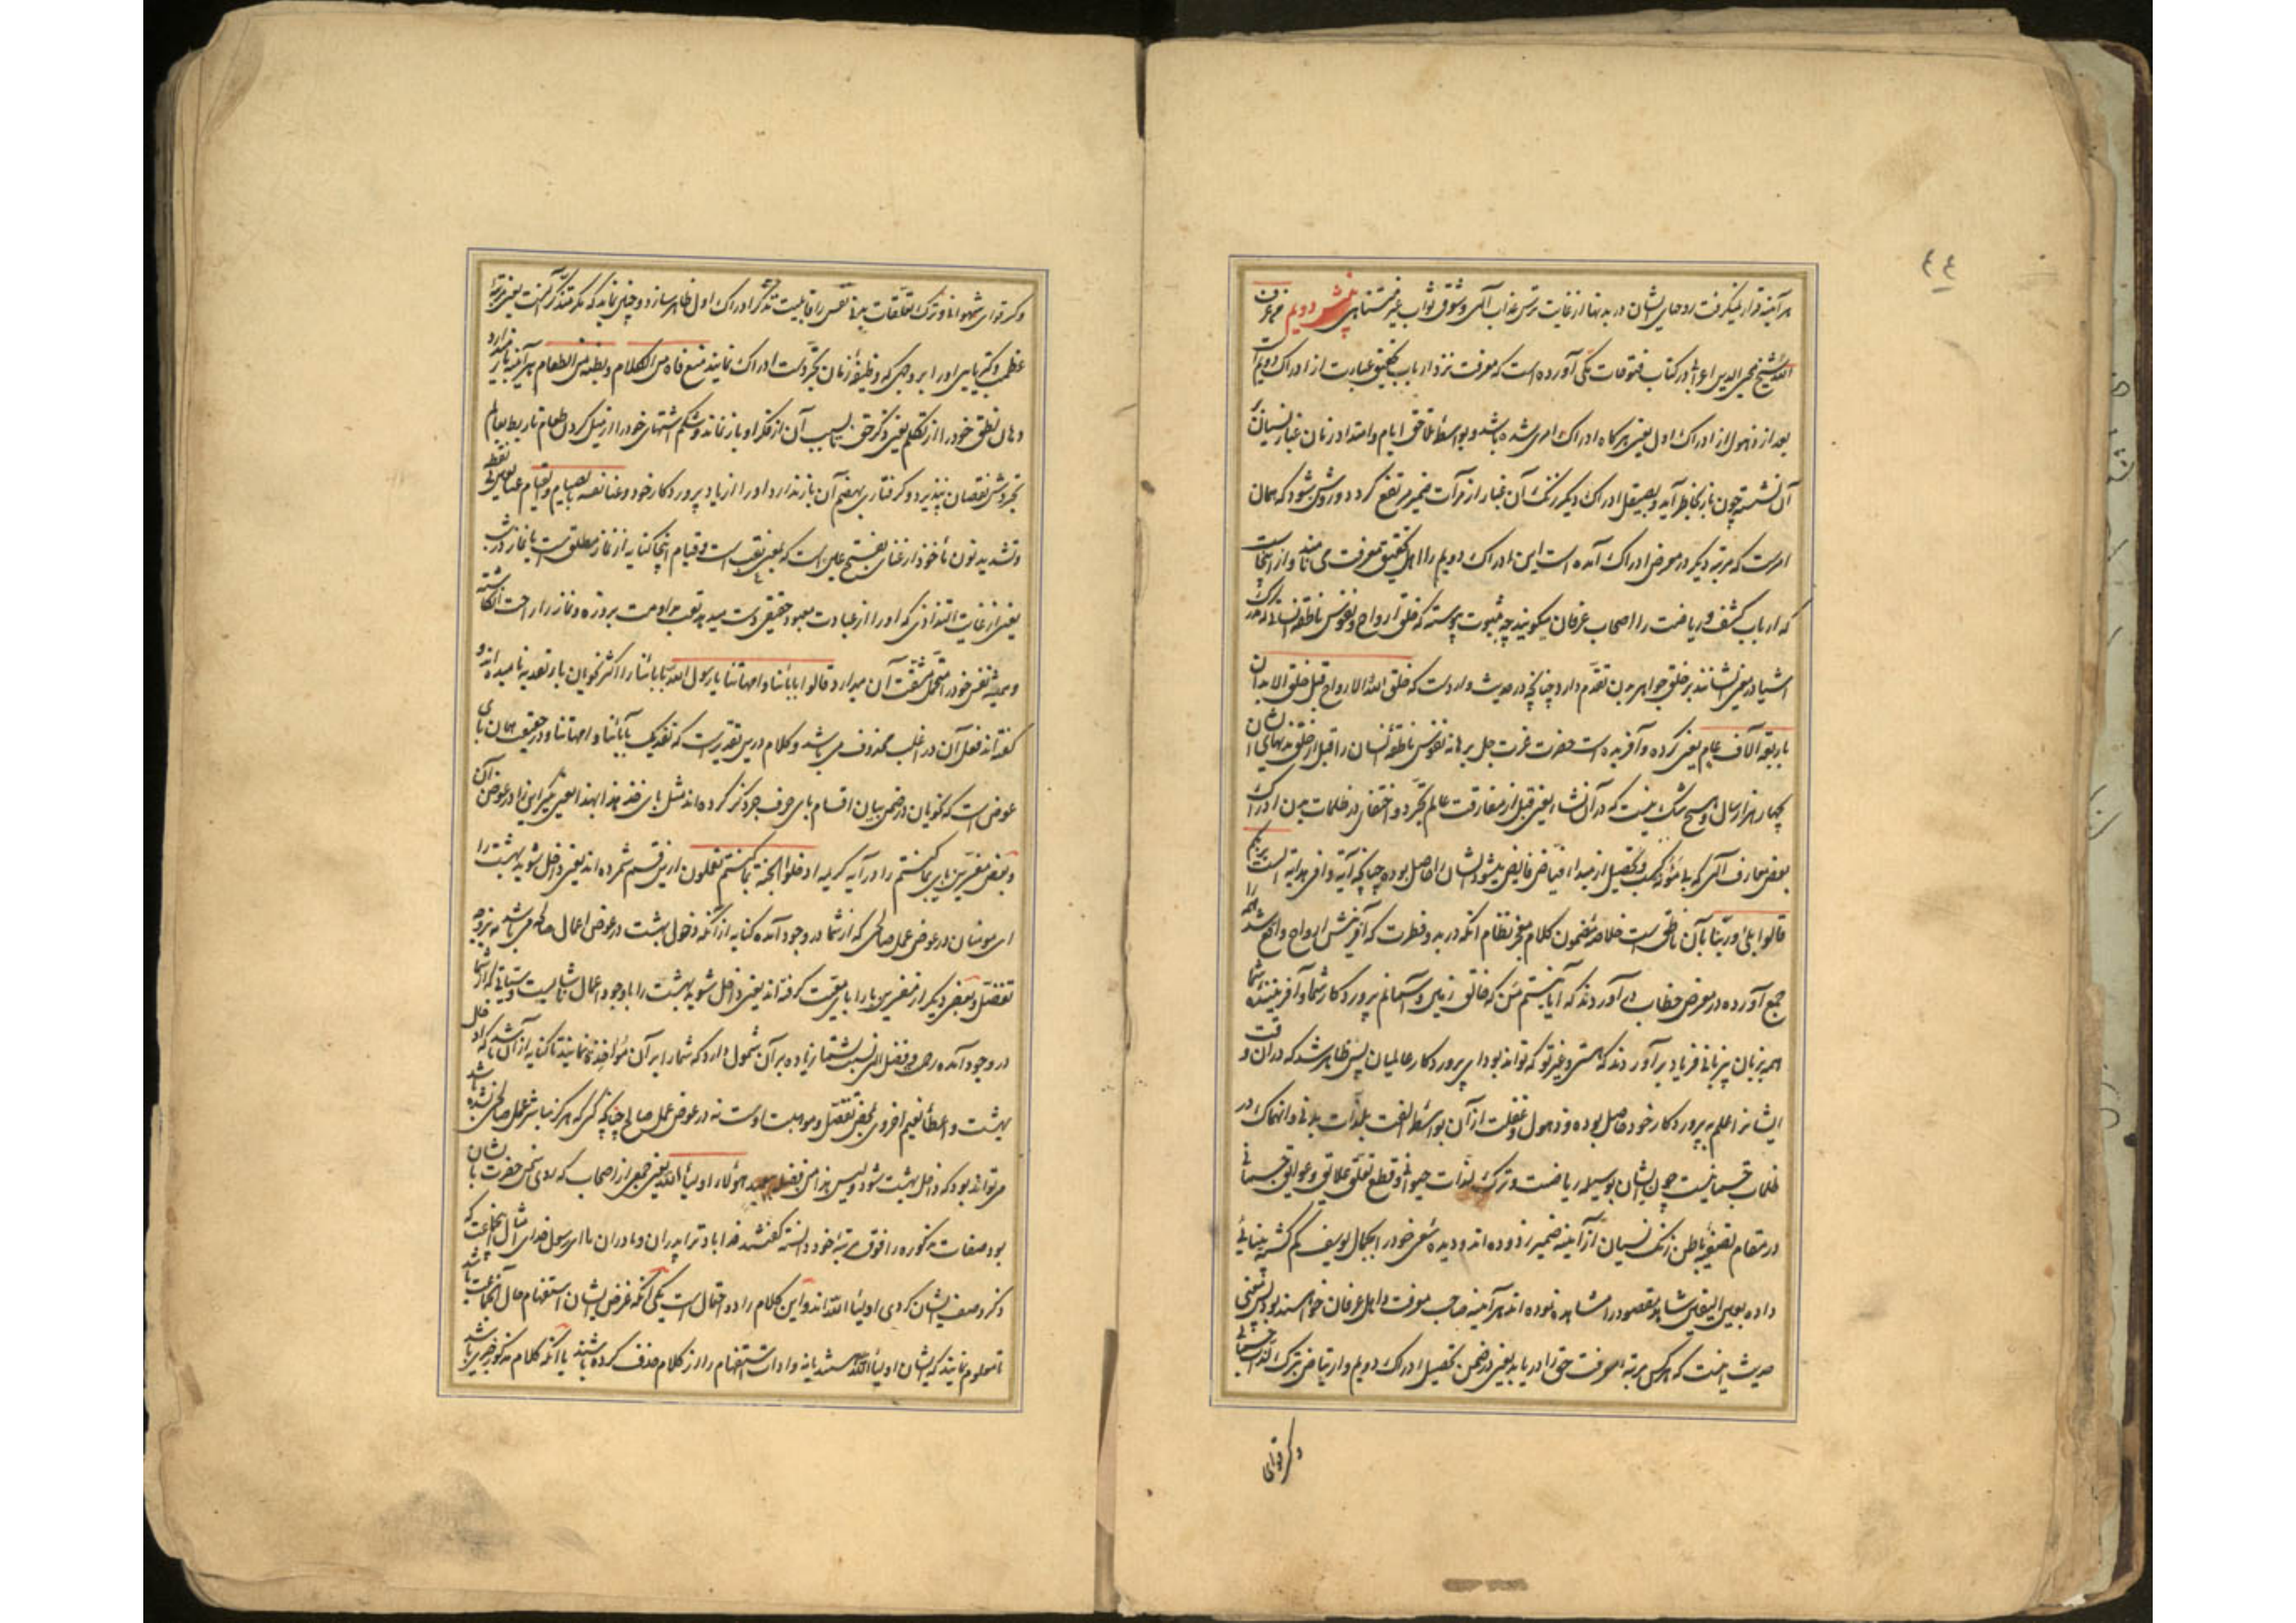 ٤٤
هر آینه قرار نمیگرفت روحهای ایشان در بدنها از غایت ترس عذاب الهی و شوق ثواب غیر متناهی دویم من عرف
الله شیخ محیی الدین اعرابی در کتاب فتوحات مکی آورده است که معرفت نزد ارباب تحقیق عبارت از ادراک دویم است
بعد از ذهول از ادراک اول یعنی هرگاه ادراک امری شده باشد و بواسطه تلاحق ایام و امتداد زمان غبار نسیان بر
آن نشسته چون باز بخاطر آید و بصیقل ادراک دیگر زنگ آن غبار از مرآت ضمیر مرتفع گردد و روشن شود که همان
امرست که مرتبه دیگر در معرض ادراک آمده است این ادراک دویم را اهل تحقیق معرفت می نامند و از اینجاست
که ارباب کشف و ریاضت را اصحاب عرفان میگویند چه بثبوت پیوسته که خلق ارواح و نفوس ناطقه انسانی که مدرک
اشیا در معنی ایشانند بر خلق جواهر بدن تقدم دارد چنانچه در حدیث واردست که خلق الله الارواح قبل خلق الابدان
باربعة آلاف عام یعنی کرده و آفریده است حضرت عزت جل برهانه نفوس ناطقه انسان را قبل از خلق بدنهای ایشان
بچهار هزار سال و هیچ شک نیست که در آن نشاء یعنی قبل از مفارقت عالم تجرد و اختفای در ظلمات بدن ادراک
بعضی معارف الهی که بی مؤنه کسب و تحصیل از مبداء فیاض فایض میشود ایشان را حاصل بوده چنانکه آیة وافی هدایة الست بربکم
قالوا بلی و ربنا بآن ناطق است خلاصه مضمون کلام معجز نظام آنکه در بدو فطرت که آفرینش ارواح واقع شد همه را
جمع آورده در معرض خطاب در آوردند که آیا نیستم من که خالق زمین و آسمانم پرورد کار شما و آفریننده شما
همه بزبان بیزبانی فریاد بر آوردند که هستی و غیر تو که تواند بود ای پرورد کار عالمیان پس ظاهر شد که در آن وقت
ایشانرا علم به پرورد کار خود حاصل بوده و ذهول و غفلت از آن بواسطه الفت بلذات بدنی و انهماک در
ظلمات جسمانیست چون ایشان بوسیله ریاضت و ترک لذات حیوانی و قطع تعلق علایق و عوایق جسمانی
در مقام تصفیه باطن زنگ نسیان از آینه ضمیر زدوده اند و دیده سعی خود را بجمال یوسف گم گشته بینائی
داده بعین الیقین شاهد مقصود را مشاهده نموده اند هر آینه صاحب معرفت و اهل عرفان خواهند بود پس معنی
حدیث اینست که هرکس مرتبه معرفت حق را دریابد یعنی در ضمن تحصیل ادراک دویم و ارتیاض بترک لذات جسمانی
وکسر قوای
وکسر قوای شهوانی و ترک تعلقات بدنی نفس را قابلیت تذکر ادراک اول ظاهر سازد و چنین نماید که مگر متذکر گشت یعنی مرتبه
عظمت و کبریایی او را بر وجهی که وظیفه زمان تجردست ادراک نمایند منع فاه من الکلام و بطنه من الطعام هر آینه باز میدارد
دهان نطق خود را از تکلم بغیر ذکر حق تا بسبب آن از فکر او باز نماند و شکم اشتهای خود را از میل کردن طعام تا ربط بعالم
تجردش نقصان نپذیرد و گرفتاری بهضم آن باز ندارد او را از یاد پرورد کار خود و عنا نفسه بالصیام و القیام عنا بعین بی نقطه
و تشدید نون مأخوذ از عنای بفتح عین است که بمعنی تعب است و قیام اینجا کنایه از نماز مطلق است یا نماز در شب
یعنی از غایت التذاذی که او را از عبادت معبود حقیقی دست میدهد تعب مداومت بروزه و نماز را راحت انکاشته
و همیشه نفس خود را متحمل مشقت آن میدارد قالوا بابائنا و امهاتنا یا رسول الله بای بابائنا را اکثر نحویان با تعدیه نامیده اند و
گفته اند فعل آن در اغلب محذوف می باشد و کلام درین تقدیرست که نفدیک بآبائنا و امهاتنا و در حقیقت همان بای
عوض است که نحویان در ضمن بیان اقسام بای حرف جر ذکر کرده اند مثل بای خذ هذا بهذا یعنی بگیر این را در عوض آن
و بعضی مفسرین بای بما کنتم را در آیه کریمه ادخلوا الجنة بما کنتم تعملون ازین قسم شمرده اند یعنی داخل شوید بهشت را
ای مومنان در عوض عمل صالحی که از شما در وجود آمده کنایه از آنکه دخول بهشت در عوض اعمال صالحه می باشد نه بر وجه
تفضل و بعضی دیگر از مفسرین با را بای معیت گرفته اند یعنی داخل شوید بهشت را با وجود اعمال ناشایست و سیئاتی که از شما
در وجود آمده رحمت و فضل الهی نسبت بشما زیاده بر آن شمول دارد که شما را بر آن مؤاخذه نمایند تا کنایه از آن باشد که ادخال
بهشت و اعطا نعیم اخروی بمحض تفضل و موهبت اوست نه در عوض عمل صالح چنانچه کسی که هرگز مباشر عمل صالحی نشده باشد
می تواند بود که داخل بهشت شود و لیس هذا من فضله ببعید هولاء اولیاء الله یعنی جمعی از اصحاب که روی سخن حضرت با ایشان
بود صفات مذکوره را فوق مرتبه خود دانسته گفتند فدا باد ترا پدران و مادران ما ای رسول خدای امثال این جماعت که
ذکر وصف ایشان کردی اولیاء الله اند و این کلام را دو احتمال است یکی آنکه غرض ایشان استفهام حال آنجماعت باشد
تا معلوم نمایند که ایشان اولیاء الله هستند یا نه و ادات استفهام را از کلام حذف کرده باشند یا آنکه کلام مذکور خبری باشد